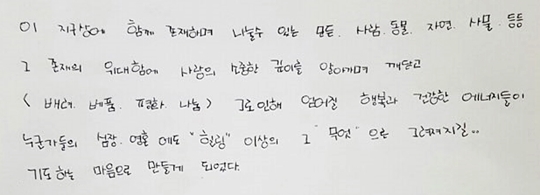 이 지구상에 함께 존재하며 나눌수 있는 모든. 사람. 동물. 자연. 사물. 등등
그 존재의 위대함에 사랑의 소중한 깊이를 알아가며 깨닫고
< 배려. 베품. 평화. 나눔 > 그로인해 얻어질 행복과 건강한 에너지들이
누군가들의 심장. 영혼 에도 "힐링" 이상의 그 "무엇" 으로 그려지길..
기도하는 마음으로 만들게 되었다.